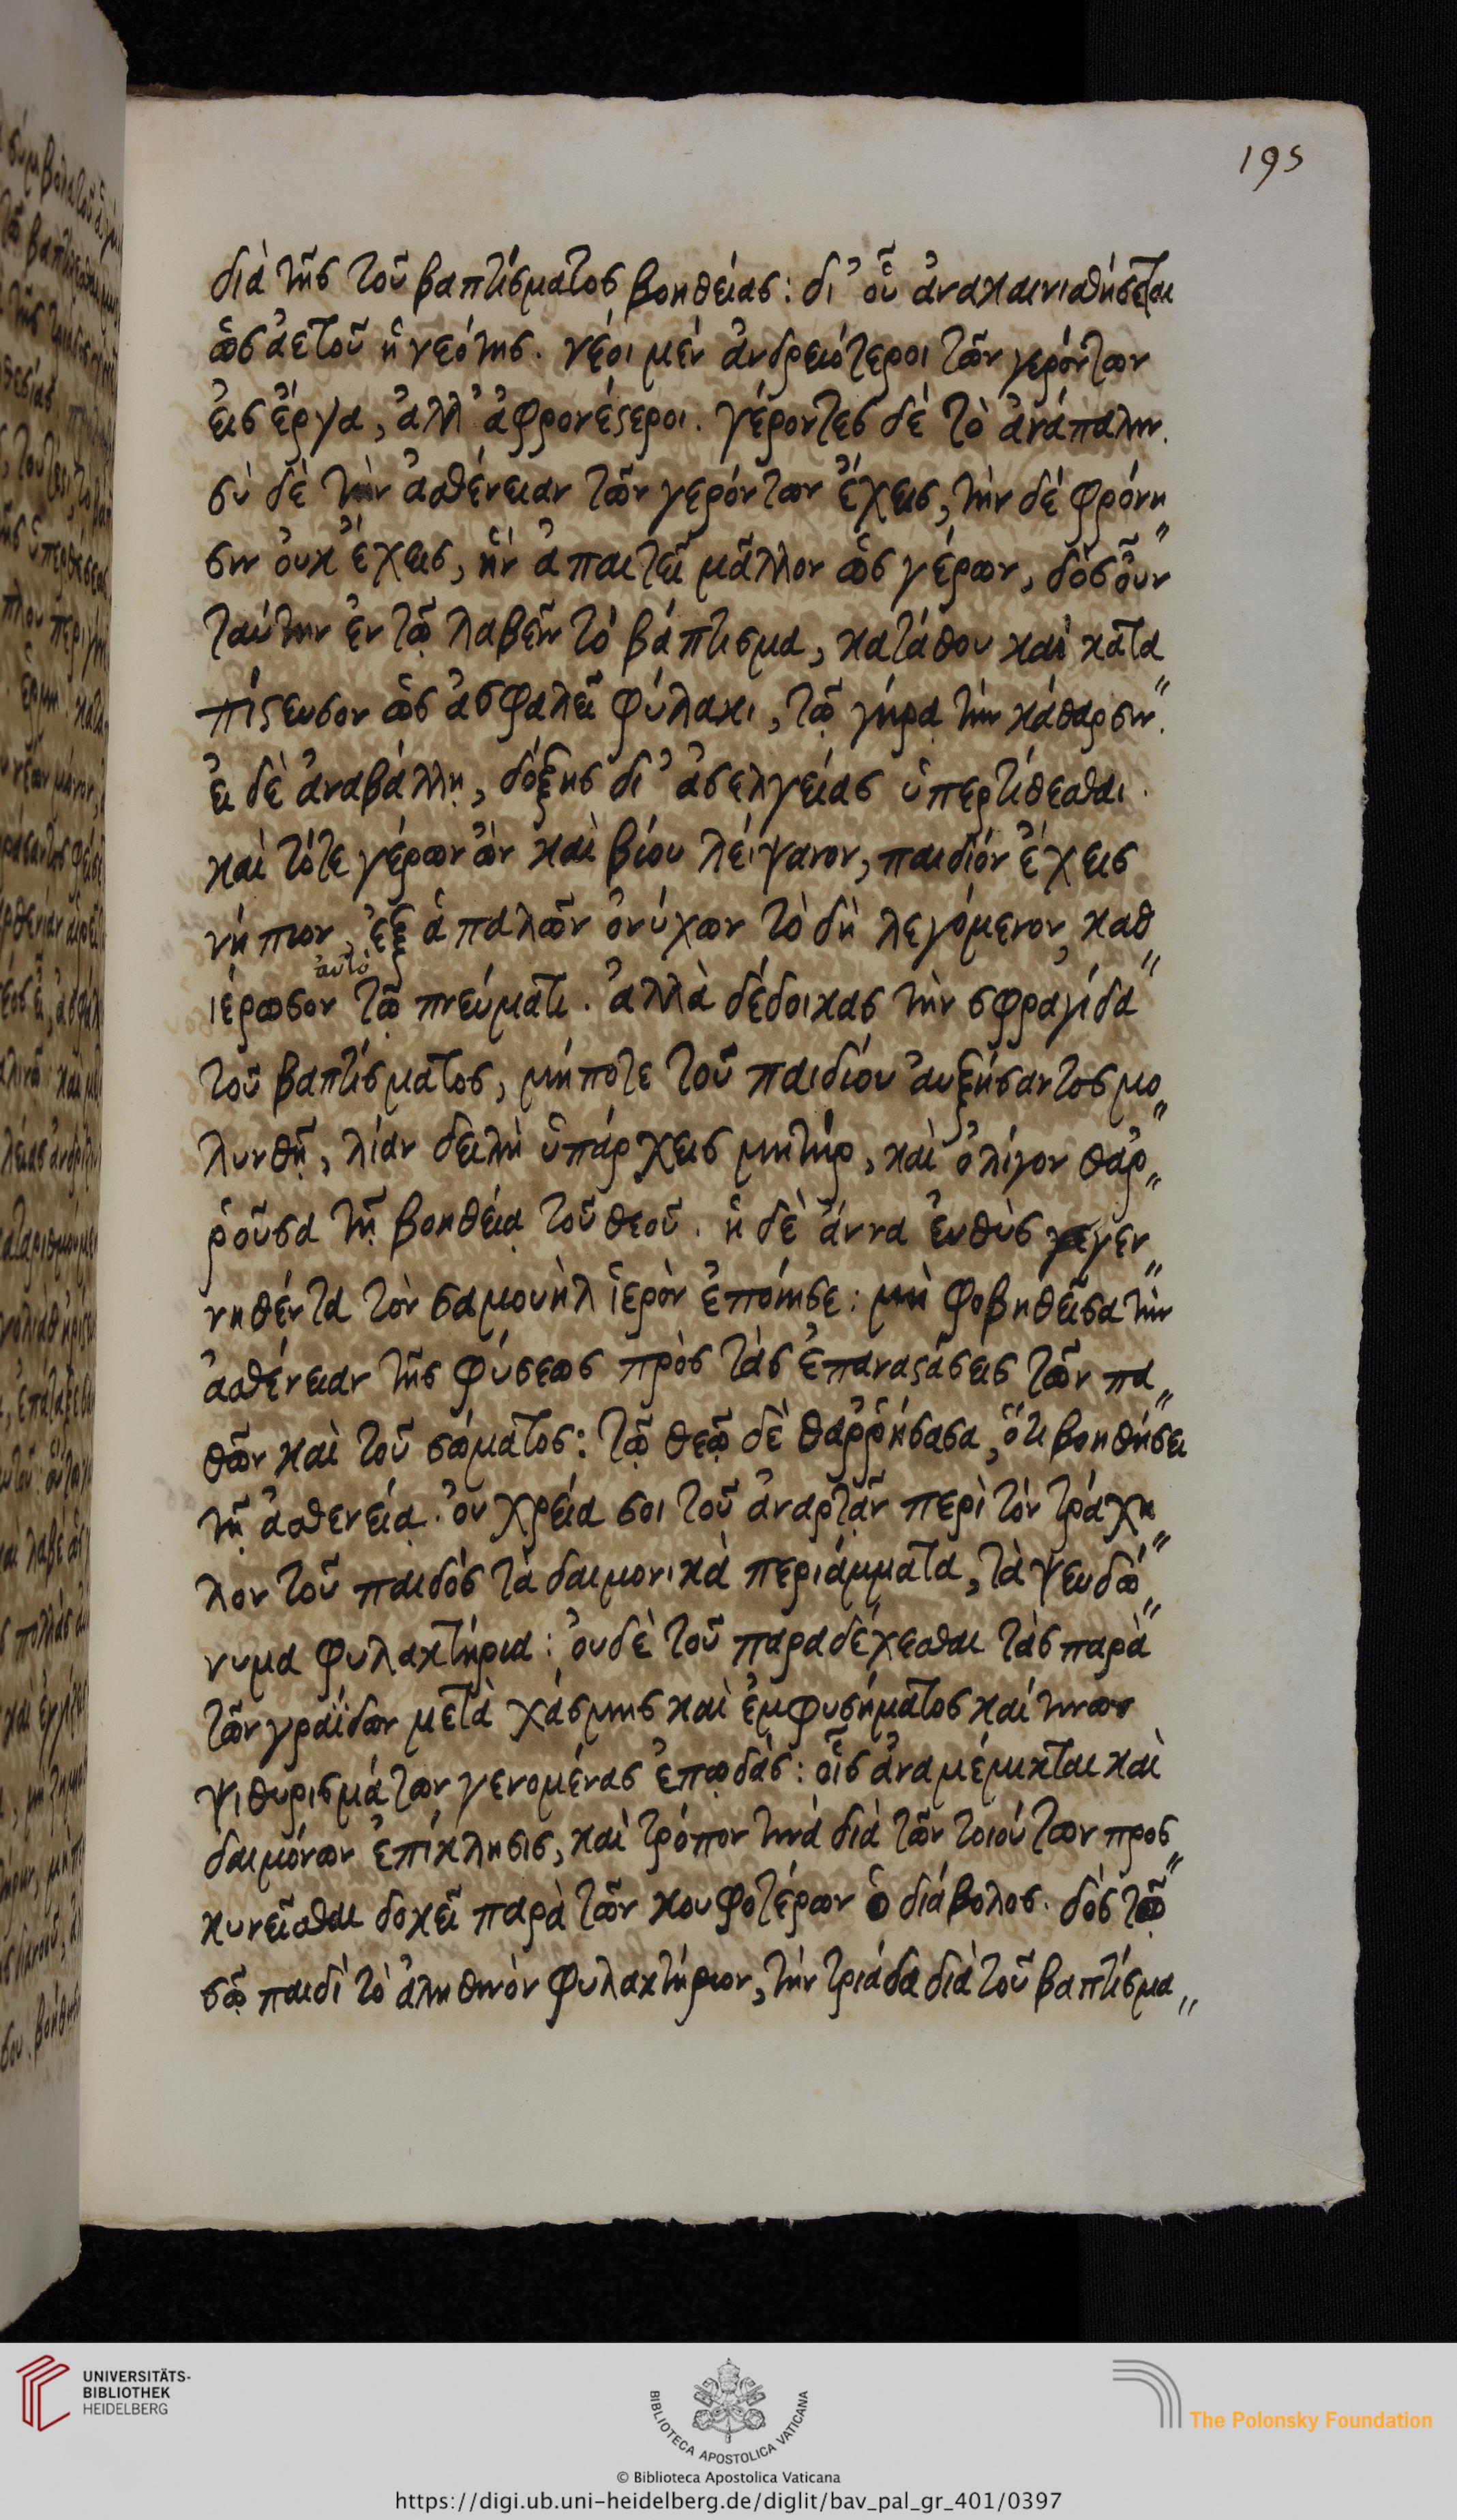 195
διὰ τῆς τοῦ βαπτίσματος βοηθείας: δι' οὗ ἀνακαινισθήσεται
ὡς ἀετοῦ ἡ νεότης. νέοι μὲν ἀνδρειότεροι τῶν γερόντων
εἰς ἔργα, ἀλλ' ἀφρονέστεροι. γέροντες δὲ τὸ ἀνάπαλιν.
σὺ δὲ τὴν ἀσθένειαν τῶν γερόντων ἔχεις, τὴν δὲ φρόνη
σιν οὐκ ἔχεις, ἣν ἀπαιτεῖ μᾶλλον ὡς γέρων, δὸς οὖν
ταύτην ἐν τῷ λαβεῖν τὸ βάπτισμα, κατάθου καὶ κατα
πίστευσον ὡς ἀσφαλεῖ φύλακι, τῷ γήρᾳ τὴν κάθαρσιν.
εἰ δὲ ἀναβάλλῃ, δόξης δι' ἀσελγείας ὑπερτίθεσθαι.
καὶ τότε γέρων ὢν καὶ βίου λείψανον, παιδίον ἔχεις
νήπιον, ἐξ ἁπαλῶν ὀνύχων τὸ δὴ λεγόμενον, καθ
αὐτὸ
ιέρωσον τῷ πνεύματι. ἀλλὰ δέδοικας τὴν σφραγίδα
τοῦ βαπτίσματος, μήποτε τοῦ παιδίου αὐξήσαντος μο
λυνθῇ, λίαν δειλὴ ὑπάρχεις μητὴρ, καὶ ὀλίγον θαρ
ῥοῦσα τῇ βοηθείᾳ τοῦ θεοῦ. ἡ δὲ ἄννα εὐθὺς γεγεν
νηθέντα τὸν σαμουὴλ ἱερὸν ἐποίησε: μὴ φοβηθεῖσα τὴν
ἀσθένειαν τῆς φύσεως πρὸς τὰς ἐπαναστάσεις τῶν πα
θῶν καὶ τοῦ σώματος: τῷ θεῷ δὲ θαῤῥήσασα, ὅτι βοηθήσει
τῇ ἀσθενείᾳ. οὐ χρεία σοι τοῦ ἀναρτᾷν περὶ τὸν τράχη
λον τοῦ παιδὸς τὰ δαιμονικὰ περιάμματα, τὰ ψευδώ
νυμα φυλακτήρια: οὐδὲ τοῦ παραδέχεσθαι τὰς παρὰ
τῶν γραΐδων μετὰ χάσμης καὶ ἐμφυσήματος καί τινων
ψιθυρισμάτων γενομένας ἐπῳδάς: οἷς ἀναμέμικται καὶ
δαιμόνων ἐπίκλησις, καὶ τρόπον τινὰ διὰ τῶν τοιούτων προς
κυνεῖσθαι δοκεῖ παρὰ τῶν κουφοτέρων ὁ διάβολος. δὸς τῷ
σῷ παιδὶ τὸ ἀληθινὸν φυλακτήριον, τὴν τριάδα διὰ τοῦ βαπτίσμα
UNIVERSITÄTS-
BIBLIOTHEK
HEIDELBERG
BIBLIOTECA APOSTOLICA VATICANA
The Polonsky Foundation
© Biblioteca Apostolica Vaticana
https://digi.ub.uni-heidelberg.de/diglit/bav_pal_gr_401/0397